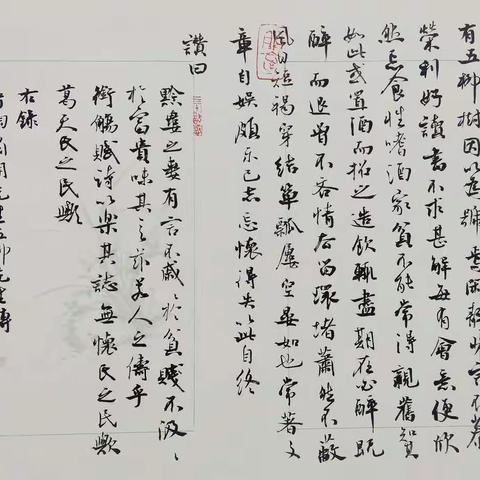 有五柳樹因以為號焉閑静少言不慕
榮利好讀書不求甚解每有會意便欣
然忘食性嗜酒家貧不能常得親舊知其
如此或置酒而招之造飲輒盡期在必醉既
醉而退曾不吝情去留環堵蕭然不蔽
風日短褐穿結簞瓢屢空晏如也常著文
章自娛頗示己志忘懷得失以此自終
讚曰
黔婁之妻有言不戚々於貧賤不汲々
於富貴味其言茲若人之儔乎
銜觴賦詩以樂其誌無懷氏之民歟
葛天氏之民歟
右錄
先生五柳先生傳